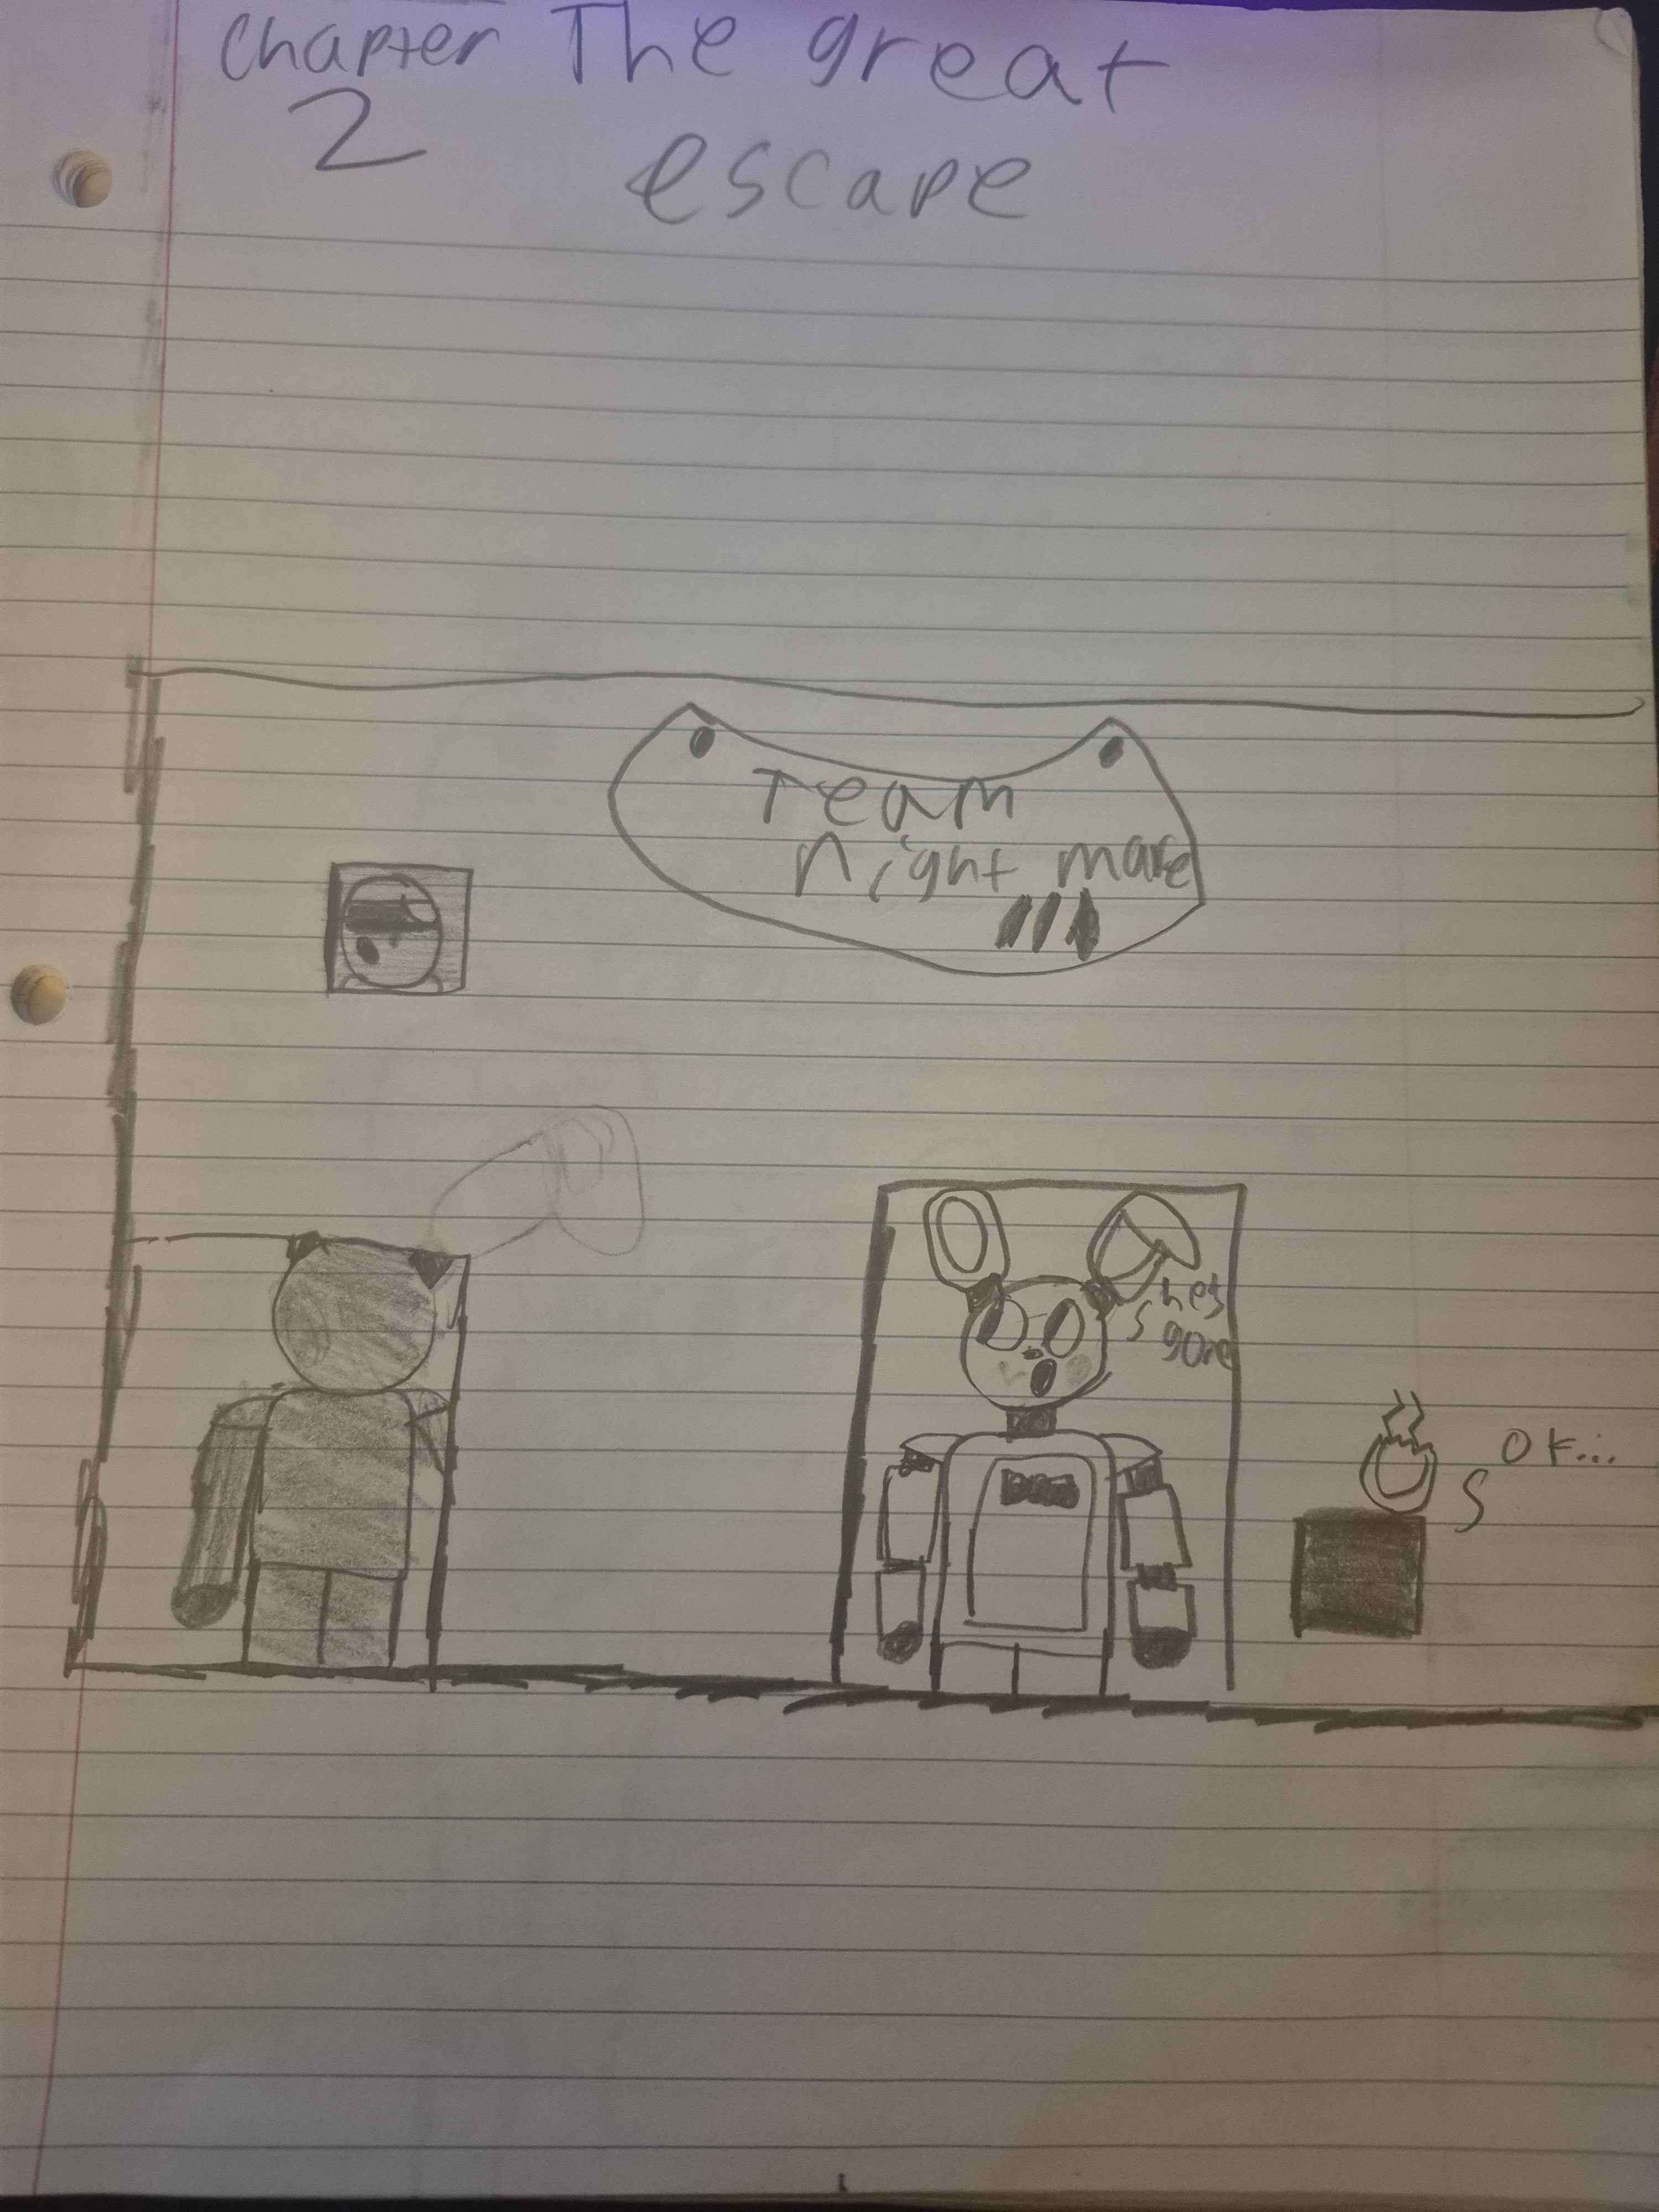 Chapter
2
The great
escape
Team
night mare
hes
gone
OK...